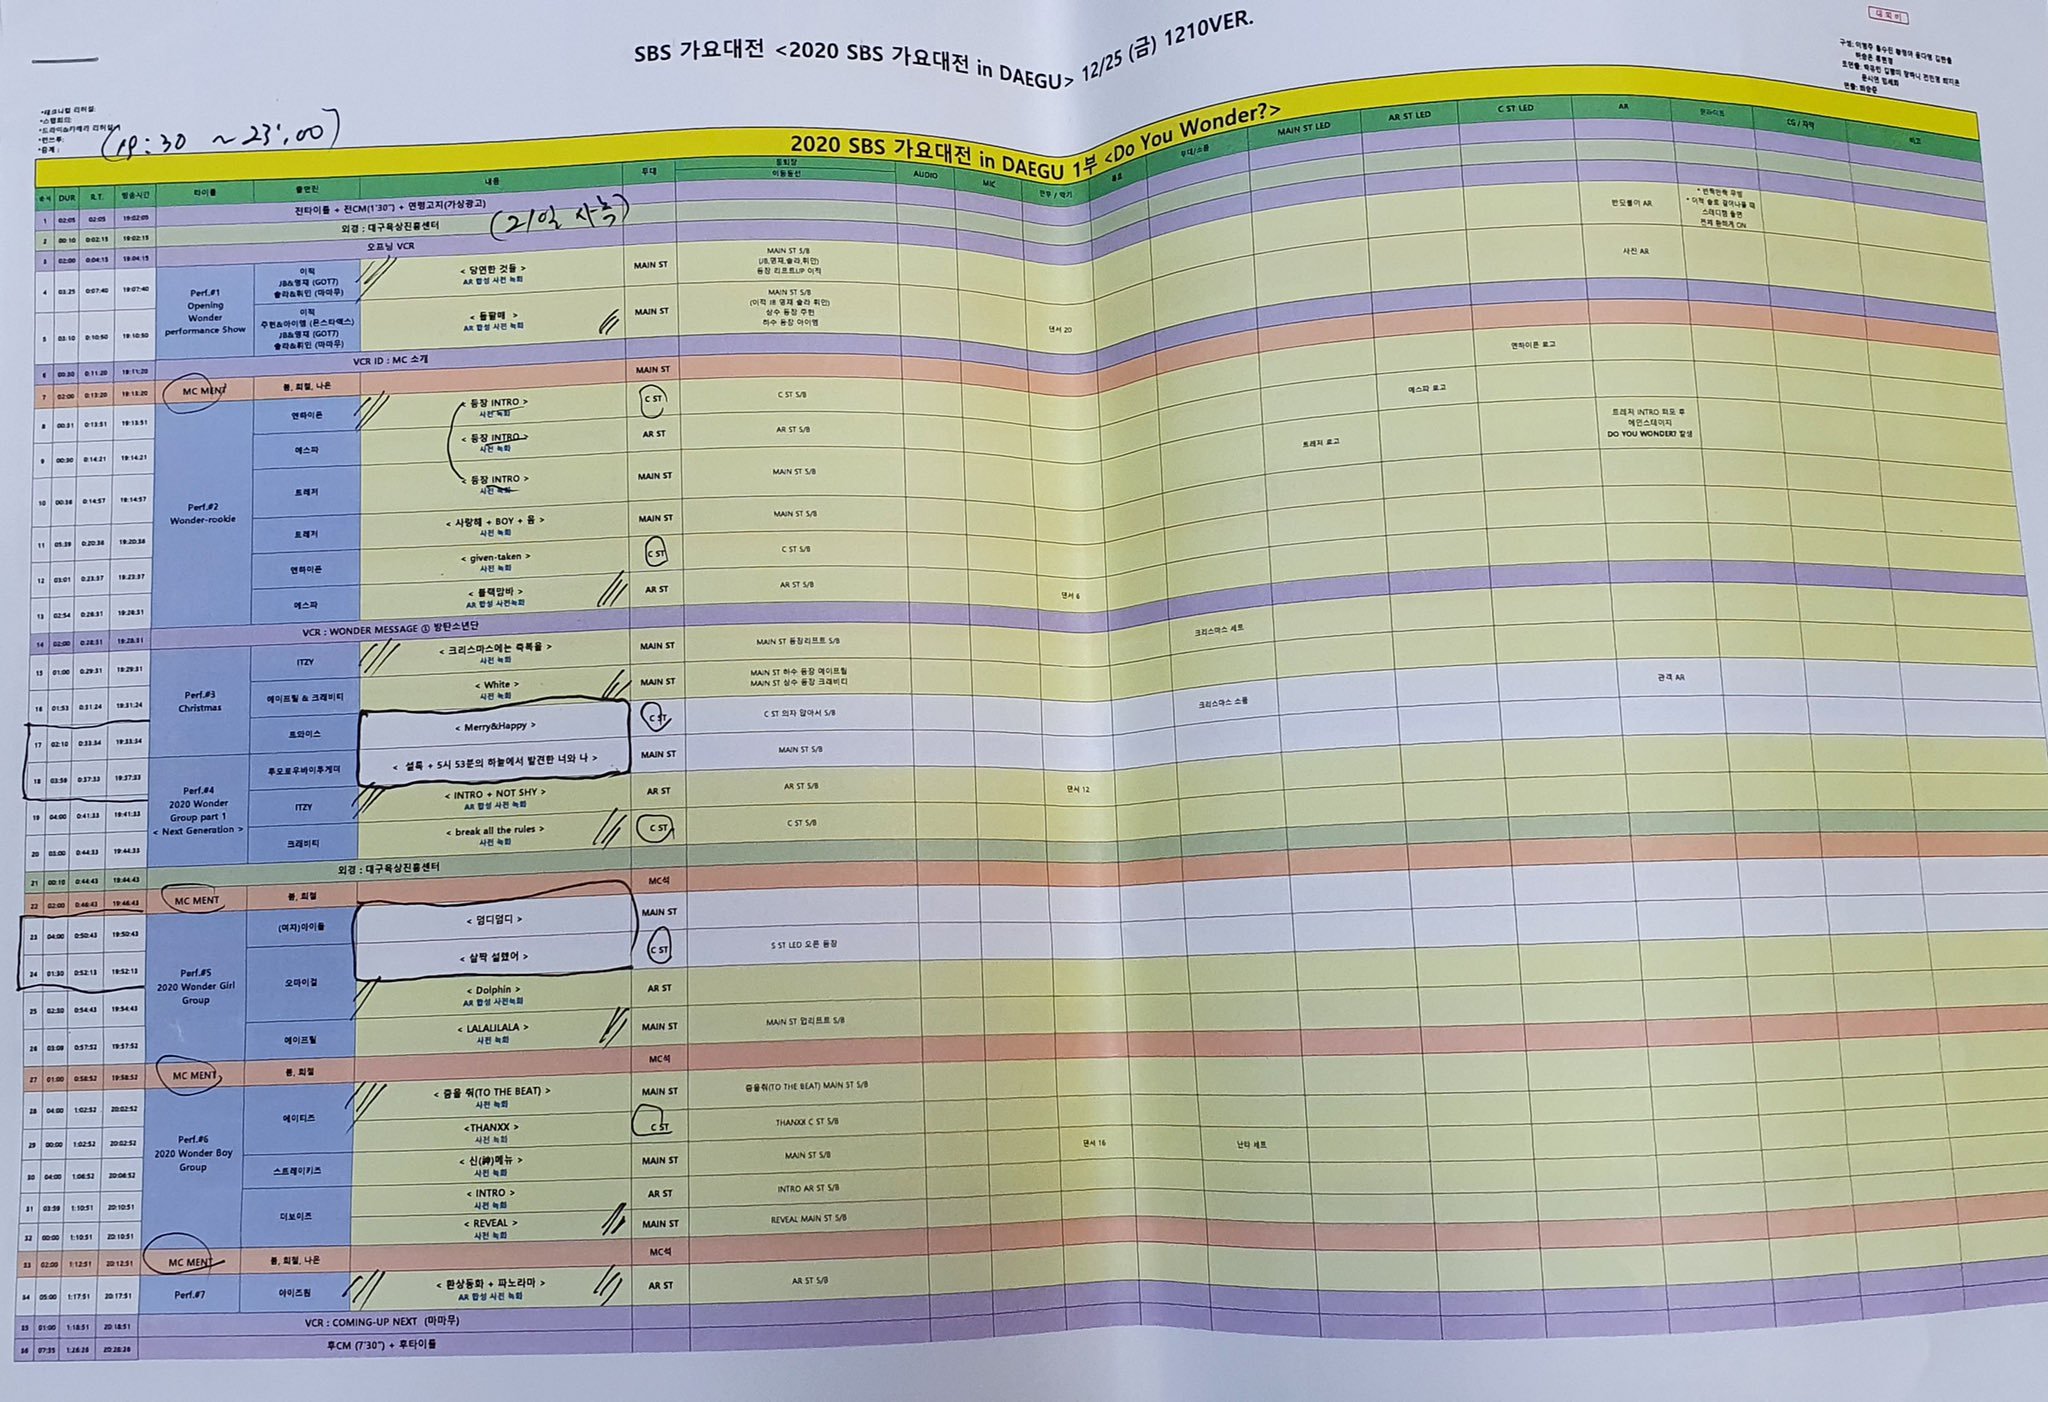 SBS 가요대전 <2020 SBS 가요대전 in DAEGU> 12/25 (금) 1210VER.
대외비
*테크니컬 리허설:
*스탭회의:
*드라이&카메라 리허설:
*런쓰루:
*중계 :
(19:30 ~ 23:00)
2020 SBS 가요대전 in DAEGU 1부 <Do You Wonder?>
순서 DUR R.T. 방송시간 타이틀 출연진 내용 무대 등퇴장 이동동선 AUDIO MIC 안무 / 악기 무대/소품 MAIN ST LED AR ST LED C ST LED AR CG / 자막 비고
1 02:05 02:05 19:02:05 전타이틀 + 전CM(1'30") + 연령고지(가상광고)
2 00:10 0:02:15 19:02:15 외경 : 대구육상진흥센터 (21일 사녹)
3 02:00 0:04:15 19:04:15 오프닝 VCR
Perf.#1
Opening
Wonder
performance Show
4 03:25 0:07:40 19:07:40 이적 JB&영재 (GOT7) 솔라&휘인 (마마무) < 당연한 것들 > AR 합성 사전 녹화 MAIN ST MAIN ST S/B (JB,영재,솔라,휘인) 등장 리프트UP 이적 반모률이 AR
* 이적 솔로 걸어나올 때
스테디캠 출연
5 03:10 0:10:50 19:10:50 이적 주헌&아이엠 (몬스타엑스) JB&영재 (GOT7) 솔라&휘인 (마마무) < 돌팔매 > AR 합성 사전 녹화 MAIN ST MAIN ST S/B (이적 JB 영재 솔라 휘인) 상수 등장 주헌 하수 등장 아이엠 댄서 20 사진 AR
6 00:30 0:11:20 19:11:20 VCR ID : MC 소개
7 02:00 0:13:20 19:13:20 MC MENT 붐, 희철, 나은 MAIN ST
Perf.#2
Wonder-rookie
8 00:31 0:13:51 19:13:51 엔하이픈 < 등장 INTRO > 사전 녹화 C ST C ST S/B 엔하이픈 로고
9 00:30 0:14:21 19:14:21 에스파 < 등장 INTRO > 사전 녹화 AR ST AR ST S/B 에스파 로고
10 00:36 0:14:57 19:14:57 트레저 < 등장 INTRO > 사전 녹화 MAIN ST MAIN ST S/B 트레저 로고 트레저 INTRO 퍼포 후 메인스테이지 DO YOU WONDER? 발생
11 05:39 0:20:36 19:20:36 트레저 < 사랑해 + BOY + 음 > MAIN ST MAIN ST S/B
12 03:01 0:23:37 19:23:37 엔하이픈 < given-taken > 사전 녹화 C ST C ST S/B
13 02:54 0:26:31 19:26:31 에스파 < 블랙맘바 > AR 합성 사전녹화 AR ST AR ST S/B 댄서 6
14 02:00 0:28:31 19:28:31 VCR : WONDER MESSAGE ① 방탄소년단
Perf.#3
Christmas
15 01:00 0:29:31 19:29:31 ITZY < 크리스마스에는 축복을 > 사전 녹화 MAIN ST MAIN ST 등장리프트 S/B 크리스마스 세트
16 01:53 0:31:24 19:31:24 에이프릴 & 크래비티 < White > 사전 녹화 MAIN ST MAIN ST 하수 등장 에이프릴 MAIN ST 상수 등장 크래비티
17 02:10 0:33:34 19:33:34 트와이스 < Merry&Happy > C ST C ST 의자 앉아서 S/B 크리스마스 소품 관객 AR
Perf.#4
2020 Wonder
Group part 1
< Next Generation >
18 03:59 0:37:33 19:37:33 투모로우바이투게더 < 설록 + 5시 53분의 하늘에서 발견한 너와 나 > MAIN ST MAIN ST S/B
19 04:00 0:41:33 19:41:33 ITZY < INTRO + NOT SHY > AR 합성 사전 녹화 AR ST AR ST S/B 댄서 12
20 03:00 0:44:33 19:44:33 크래비티 < break all the rules > 사전 녹화 C ST C ST S/B
21 00:10 0:44:43 19:44:43 외경 : 대구육상진흥센터
22 02:00 0:46:43 19:46:43 MC MENT 붐, 희철 MC석
Perf.#5
2020 Wonder Girl
Group
23 04:00 0:50:43 19:50:43 (여자)아이들 < 덤디덤디 > MAIN ST
24 01:30 0:52:13 19:52:13 오마이걸 < 살짝 설렜어 > C ST S ST LED 오픈 등장
25 02:30 0:54:43 19:54:43 < Dolphin > AR 합성 사전녹화 AR ST
26 03:09 0:57:52 19:57:52 에이프릴 < LALALILALA > 사전 녹화 MAIN ST MAIN ST 업리프트 S/B
27 01:00 0:58:52 19:58:52 MC MENT 붐, 희철 MC석
Perf.#6
2020 Wonder Boy
Group
28 04:00 1:02:52 20:02:52 에이티즈 < 춤을 춰(TO THE BEAT) > 사전 녹화 MAIN ST 춤을춰(TO THE BEAT) MAIN ST S/B
29 00:00 1:02:52 20:02:52 <THANXX > 사전 녹화 C ST THANXX C ST S/B
30 04:00 1:06:52 20:06:52 스트레이키즈 < 신(神)메뉴 > 사전 녹화 MAIN ST MAIN ST S/B 댄서 16 난타 세트
31 03:59 1:10:51 20:10:51 더보이즈 < INTRO > 사전 녹화 AR ST INTRO AR ST S/B
32 00:00 1:10:51 20:10:51 < REVEAL > 사전 녹화 MAIN ST REVEAL MAIN ST S/B
33 02:00 1:12:51 20:12:51 MC MENT 붐, 희철, 나은 MC석
34 05:00 1:17:51 20:17:51 Perf.#7 아이즈원 < 환상동화 + 파노라마 > AR 합성 사전 녹화 AR ST AR ST S/B
35 01:00 1:18:51 20:18:51 VCR : COMING-UP NEXT (마마무)
36 07:35 1:26:26 20:26:26 후CM (7'30") + 후타이틀